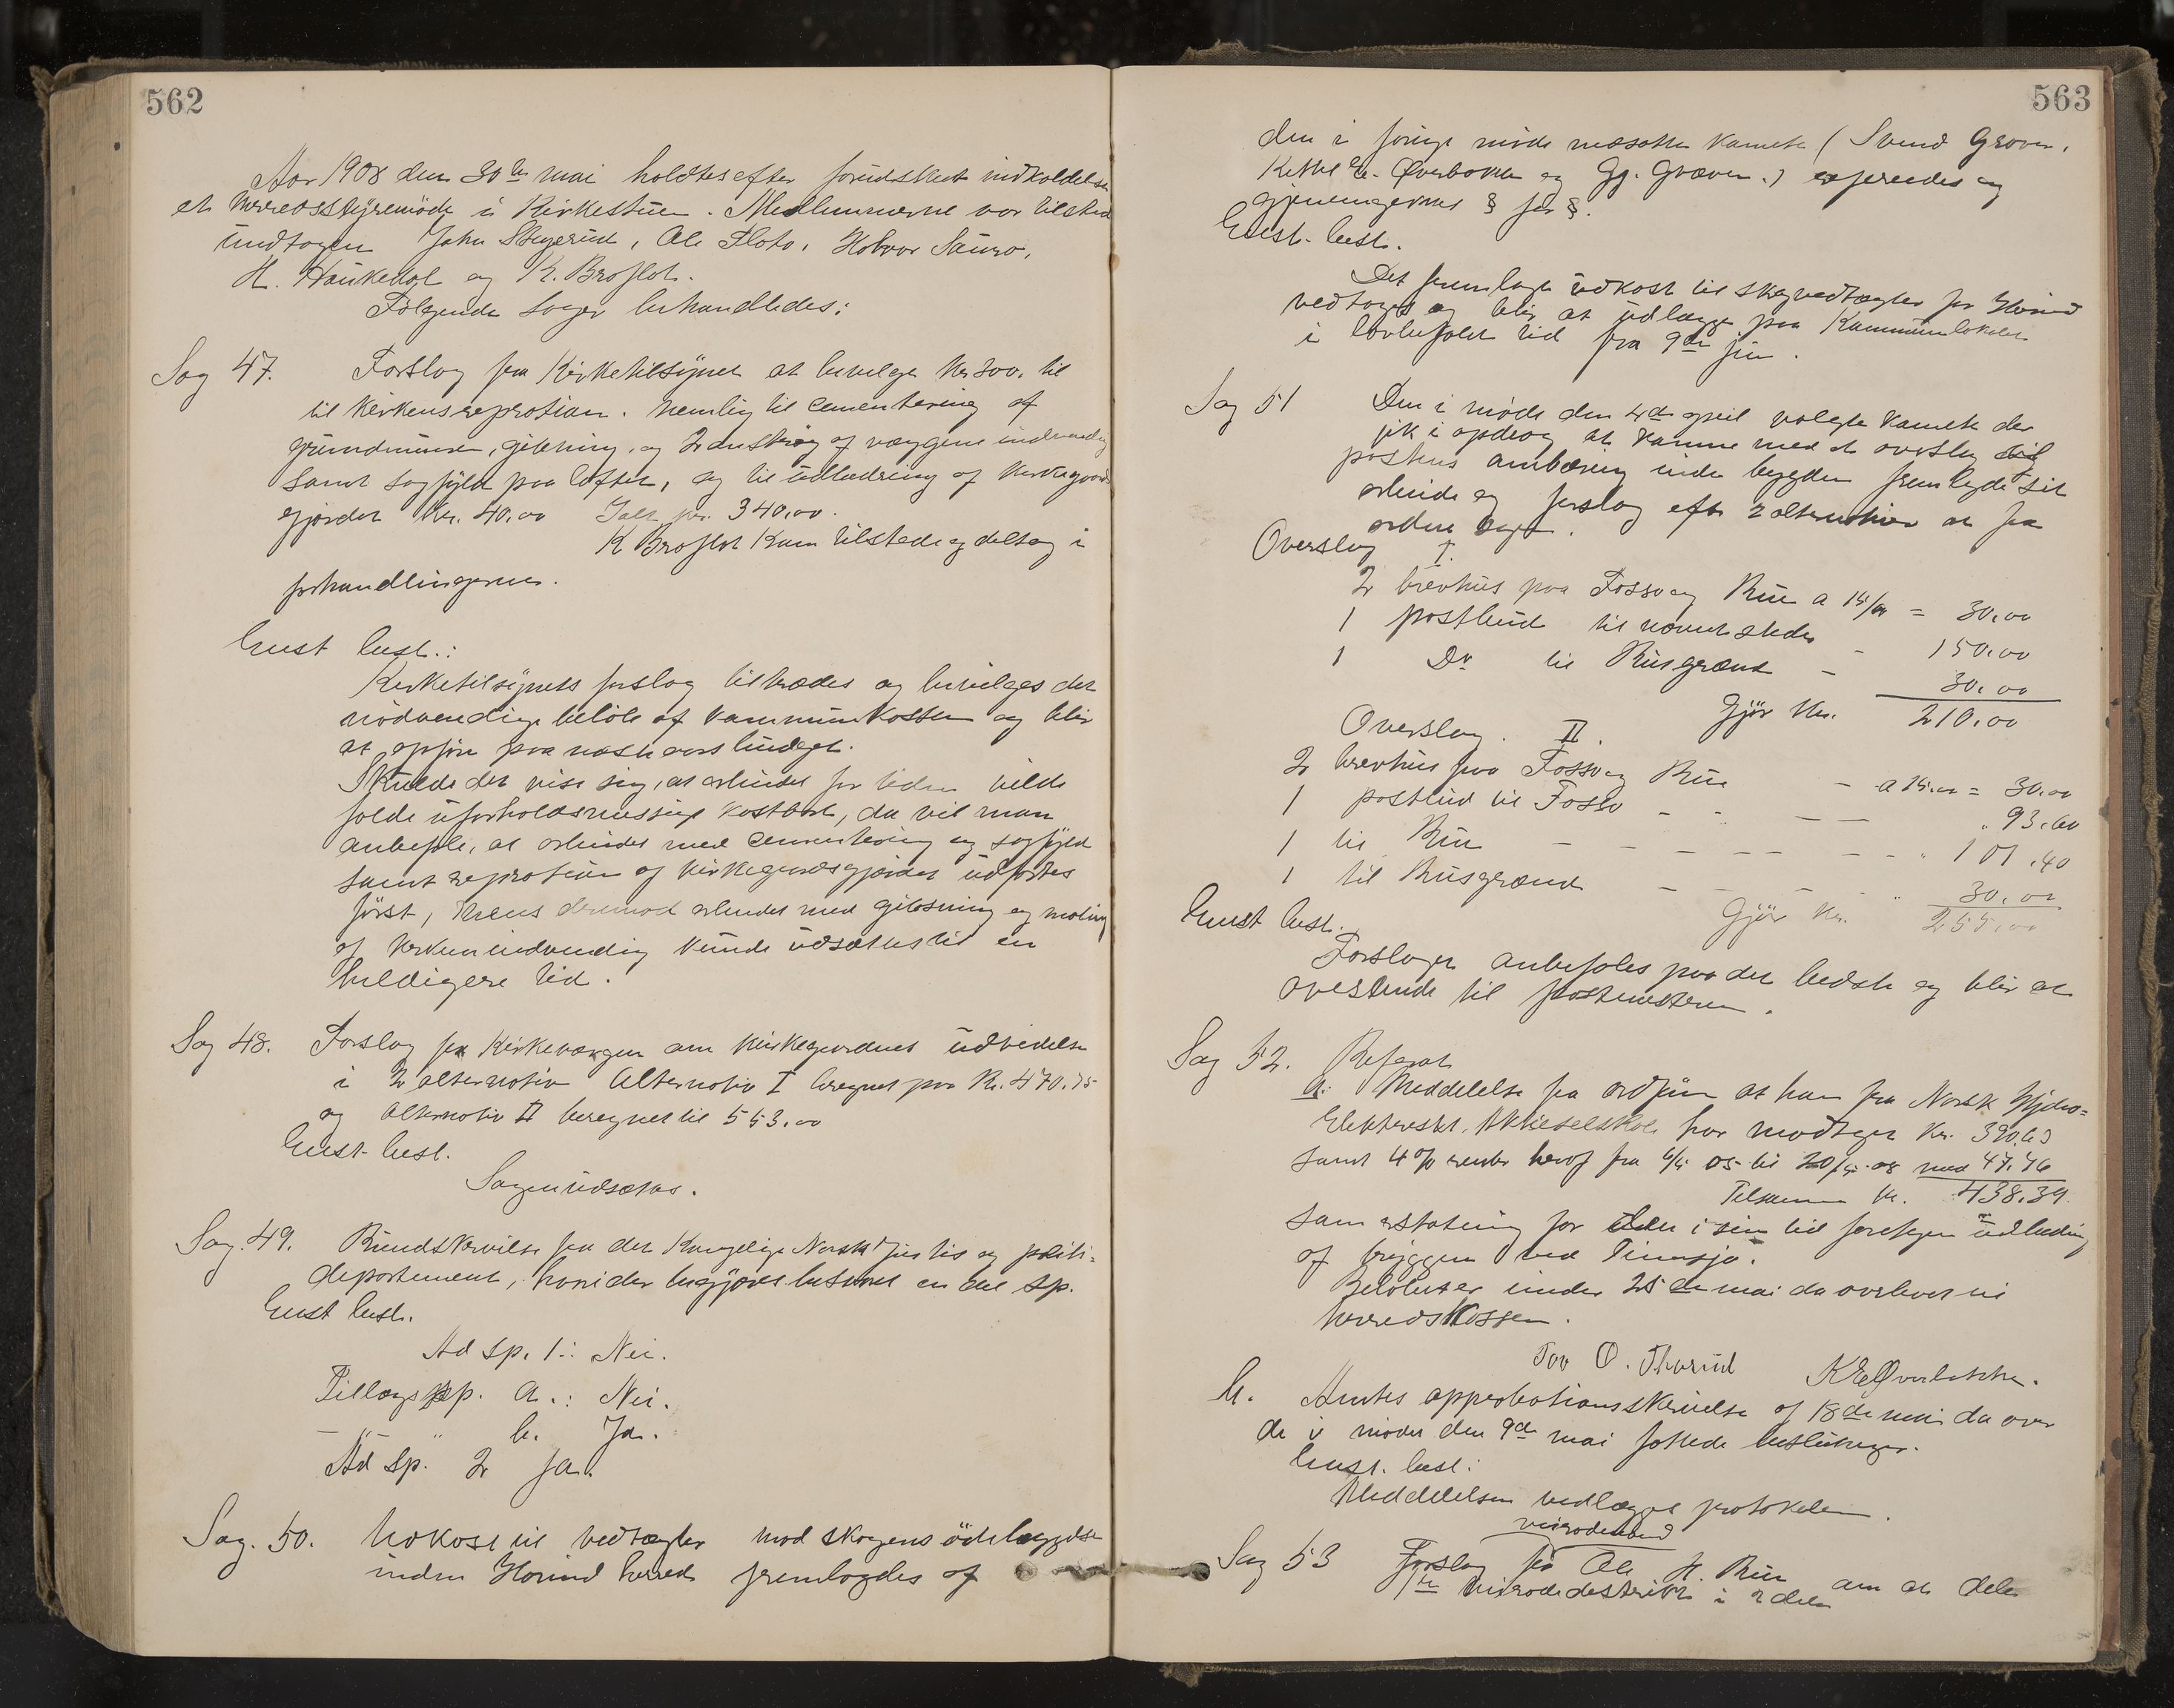 562
Aar 1908 den 30te mai holdtes efter forudskeet indkaldelse
et herredsstyremöde i Kirkestuen. Medlemmerne var tilstede
undtagen John Skogerud, Ole Floto, Halvor Sauro,
H. Haukedal og K. Brosløt.
Følgende sager behandledes:
Sag 47. Forslag fra Kirketilsynet at bevilge kr 300, til
til Kirkens repration. nemlig til cementering af
grundmuren, gibsning, og 2 anstrøg af væggene indvendig
samt sagfyld paa loftet, og til udbedring af kirkegaards
gjærdet kr. 40,00 Ialt kr. 340,00.
K Brosløt kom tilstede og deltog i
forhandlingerne.
Enst besl.:
Kirketilsynets forslag tiltrædes og bevilges det
nödvendige belöb af kommunekassen og blir
at opföre paa næste aars budget.
Skulde det vise sig, at arbeidet for tiden vilde
falde uforholdsmessige kostbart, da vil man
anbefale, at arbeidet med cementering og sagfyld
samt repration af kirkegaardsgjærdet udföres
först, mens derimod arbeidet med gibsning og maling
af kirken indvendig kunde udsættes til en
heldigere tid.
Sag 48. Forslag fra Kirkeværgen om kirkegaardens udvidelse
i 2 alternativ Alternativ I beregnet paa Kr. 470.75
og Alternativ II beregnet til 553.00
Enst besl.
Sagen udsættes.
Sag. 49. Rundskrivelse fra det Kongelige Norske justis og politi=
departement, hvori der begjæres besvaret en del sp.
Enst besl.
Ad sp. 1.: Nei.
Tillægssp. a.: Nei.
— " — " b. Ja.
Ad sp. 2 Ja.
Sag. 50. Udkast til vedtægter mod skogens ödelæggelse
inden Hovind herred fremlagdes af
563
den i forrige möde nedsatte komite (Svend Graver,
Kittil E. Øverbøkken og Gj. Graver.) oplæstes og
gjennemgaaes § for §.
Enst. besl.
Det fremlagte udkast til skogvedtægter for Hovind
vedtages og blir at udlægge paa Kommunelokalet
i lovbefalet tid fra 9de juni.
Sag 51 Den i møde den 4de april valgte komite der
fik i opdrag at komme med et overslag til
postens ombæring inden bygden fremlagde sit
arbeide og forslag efter 2 alternativer at faa
ordne dager.
Overslag I.
2 brevhus paa Fosso og Bøen a 15/00 = 30,00
1 postbud til nævnte steder - 150,00
1 Do til Rusgrænd - 30,00
Gjør Kr. 210,00
Overslag. II.
2 brevhus paa Fosso og Bøen - a 15.00 = 30,00
1 postbud til Fosso - - — — " 93.60
1 til Bøen — — — — — — — - " 101.40
1 til Rusgrænd — — — - " 30,00
Gjör Kr. 255,00
Enst besl.
Forslaget anbefales paa det bedste og blir at
oversende til postmesteren.
Sag 52. Referat
a: Meddelelse fra ordføreren at han fra Norsk Hydro=
Elektriske Aktieselskab har modtaget Kr. 390,63
samt 4% renter herof fra 6/5 05 til 20/5 08 med 47.76
Tilsammen kr. 438.39
som erstatning for den i sin tid foretagen udbedring
af bryggen ved Tinnsjø.
Beløbet er under 25de mai da overleveret
herredskassen.
Tov O. Thorud K E Øverbøkken.
b. Amtets approbationsskrivelse af 18de mai da over
de i mødet den 9de mai fattede beslutninger.
Enst. besl:
Meddelelsen vedlægges protokollen.
veirodebud
Sag 53 Forslag fra Ole H. Bøen om at dele
1ste veirodedistrikt i 2 dele